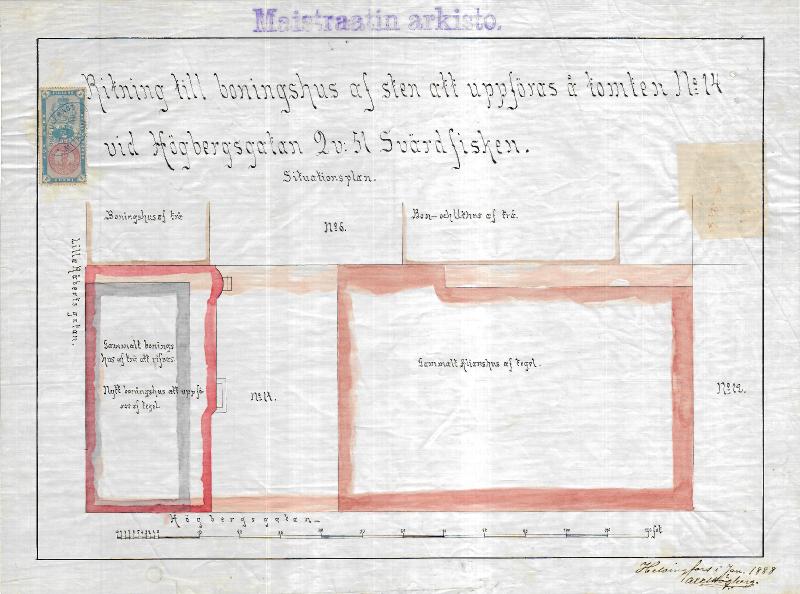 Maistraatin arkisto.
Ritning till boningshus af sten att uppföras å tomten No 14
vid Högbergsgatan Qv: 51 Svärdfisken.
Situationsplan.
Boningshus af trä
No 6.
Bon- och Uthus af trä.
Lilla Robertsgatan.
Gammalt bonings
hus af trä att rifvas.
Nytt boningshus att uppfö-
ras af tegel.
No 14.
Gammalt stenhus af tegel.
No 12.
Högbergsgatan
fot
Helsingfors i Jan. 1888